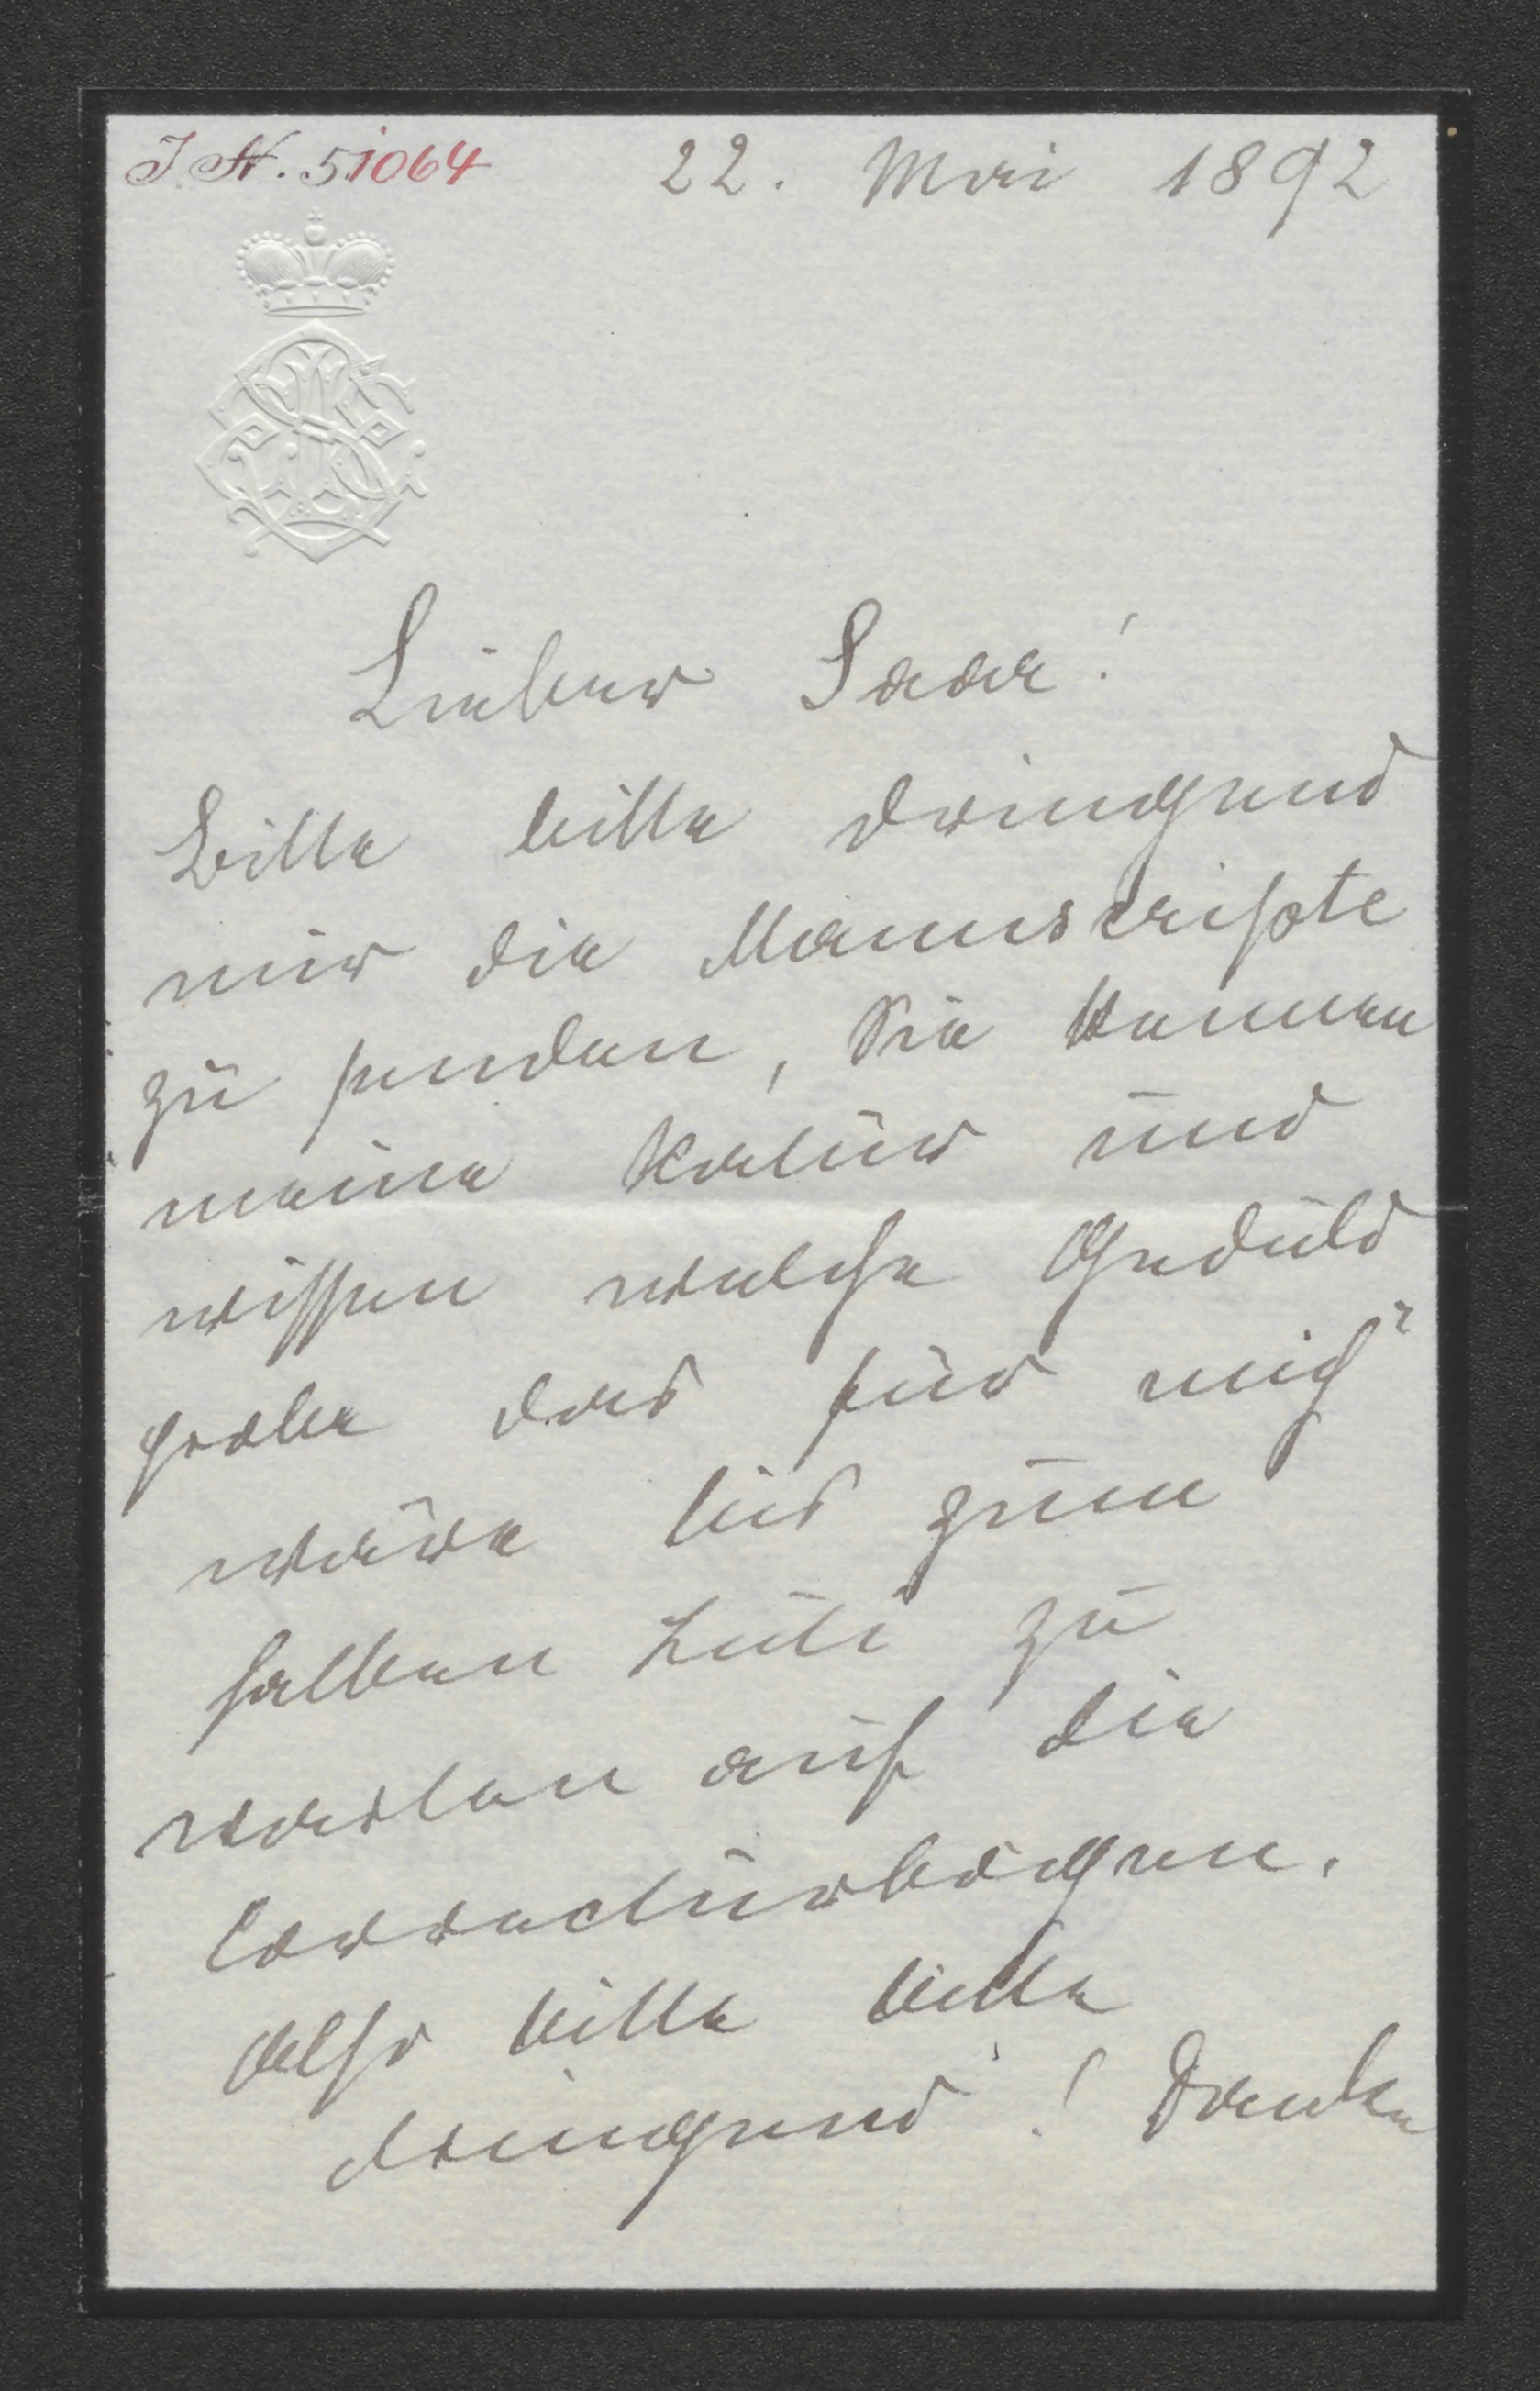 J. N. 51064
22. Mai 1892
Lieber Saar!
Bitte bitte dringend
mir die Manuscripte
zu senden, Sie kennen
meine Natur und
wissen welche Geduld-
probe das für mich
wäre bis zum
halben Juli zu
warten auf die
Correcturbögen.
Also bitte bitte
dringend! Danke